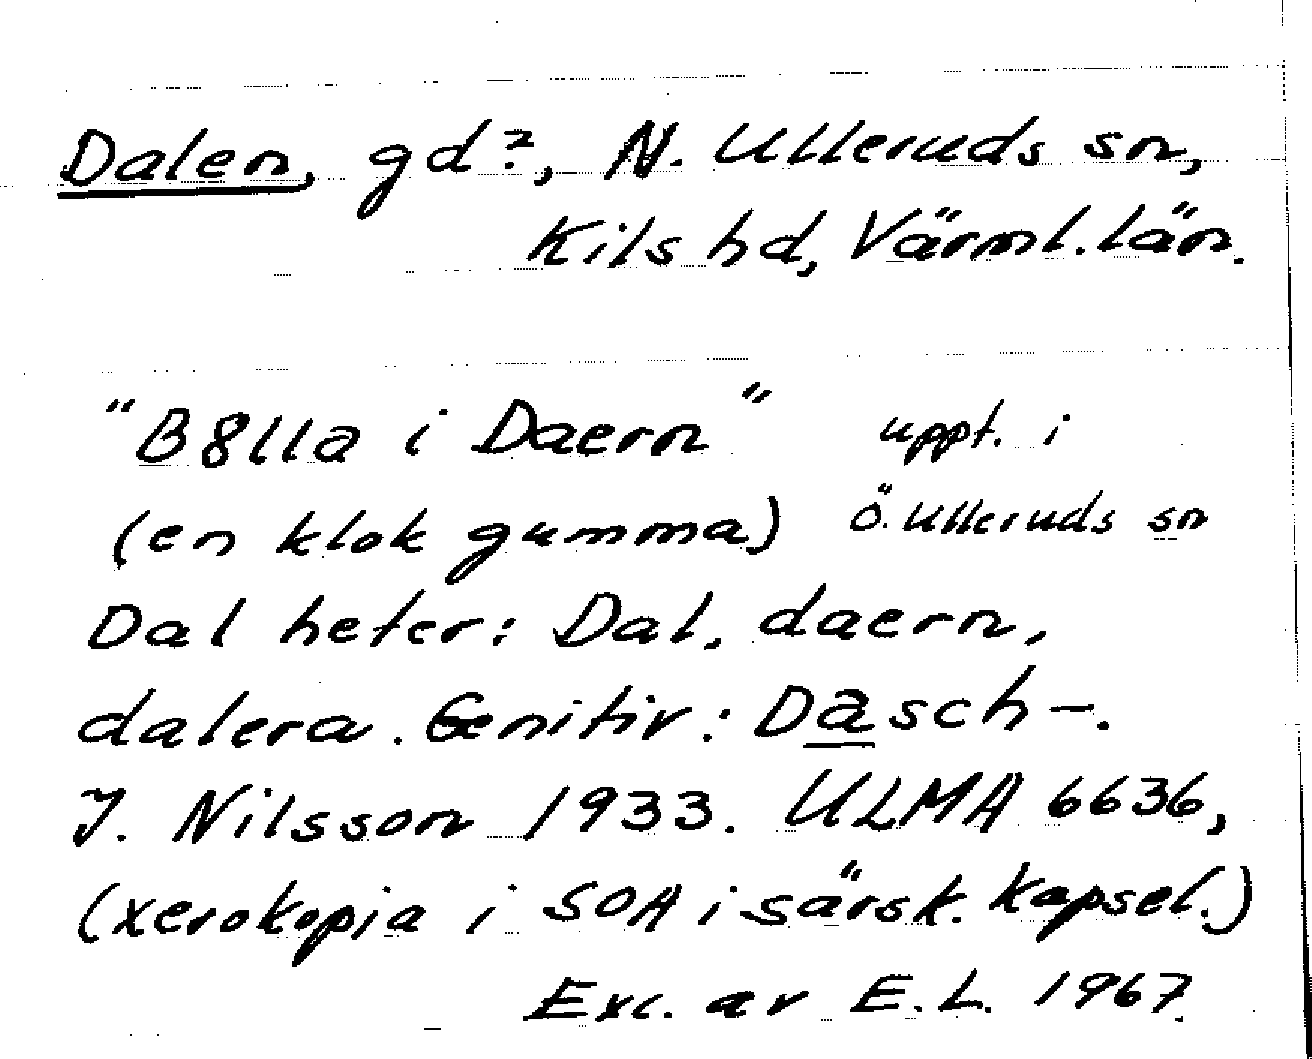 Dalen, gd?, N. Ulleruds sn,
Kils hd, Värml. län.
"B8lla i Daern" uppt. i
(en klok gumma) Ö. Ulleruds sn
Dal heter: Dal, daern,
dalera. Genitiv: Dasch-.
J. Nilsson 1933. ULMA 6636,
(xerokopia i SOA i särsk. kapsel.)
Exc. av E.L. 1967.